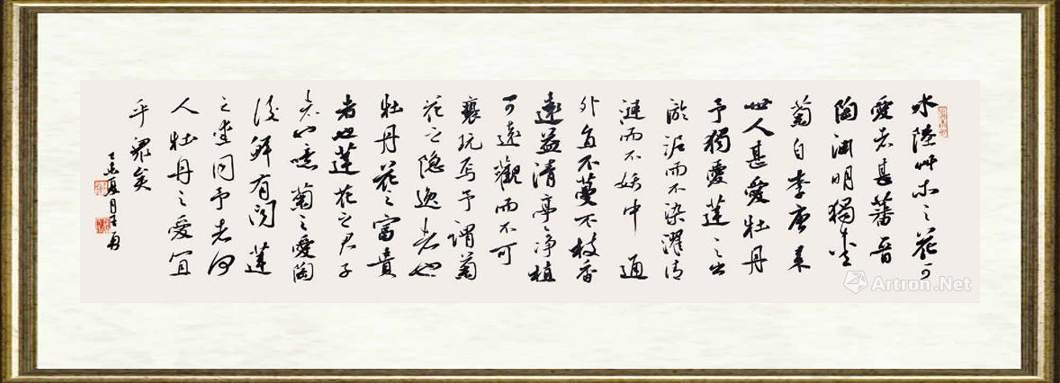 水陸艸木之花可
愛者甚蕃晉
陶淵明獨愛
菊自李唐來
世人甚愛牡丹
予獨愛蓮之出
淤泥而不染濯清
漣而不妖中通
外直不蔓不枝香
遠益清亭亭淨植
可遠觀而不可
褻玩焉予謂菊
花之隱逸者也
牡丹花之富貴
者也蓮花之君子
者也噫菊之愛陶
後鮮有聞蓮
之愛同予者何
人牡丹之愛宜
乎眾矣
夏月
Artron.Net